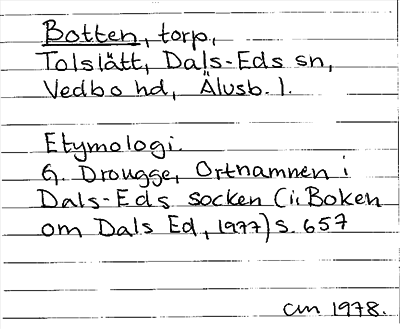 Botten, torp,
Tolslätt, Dals-Eds sn,
Vedbo hd, Älvsb. l.
Etymologi.
G. Drougge, Ortnamnen i
Dals-Eds socken (i: Boken
om Dals Ed, 1977) s. 657
cm 1978.